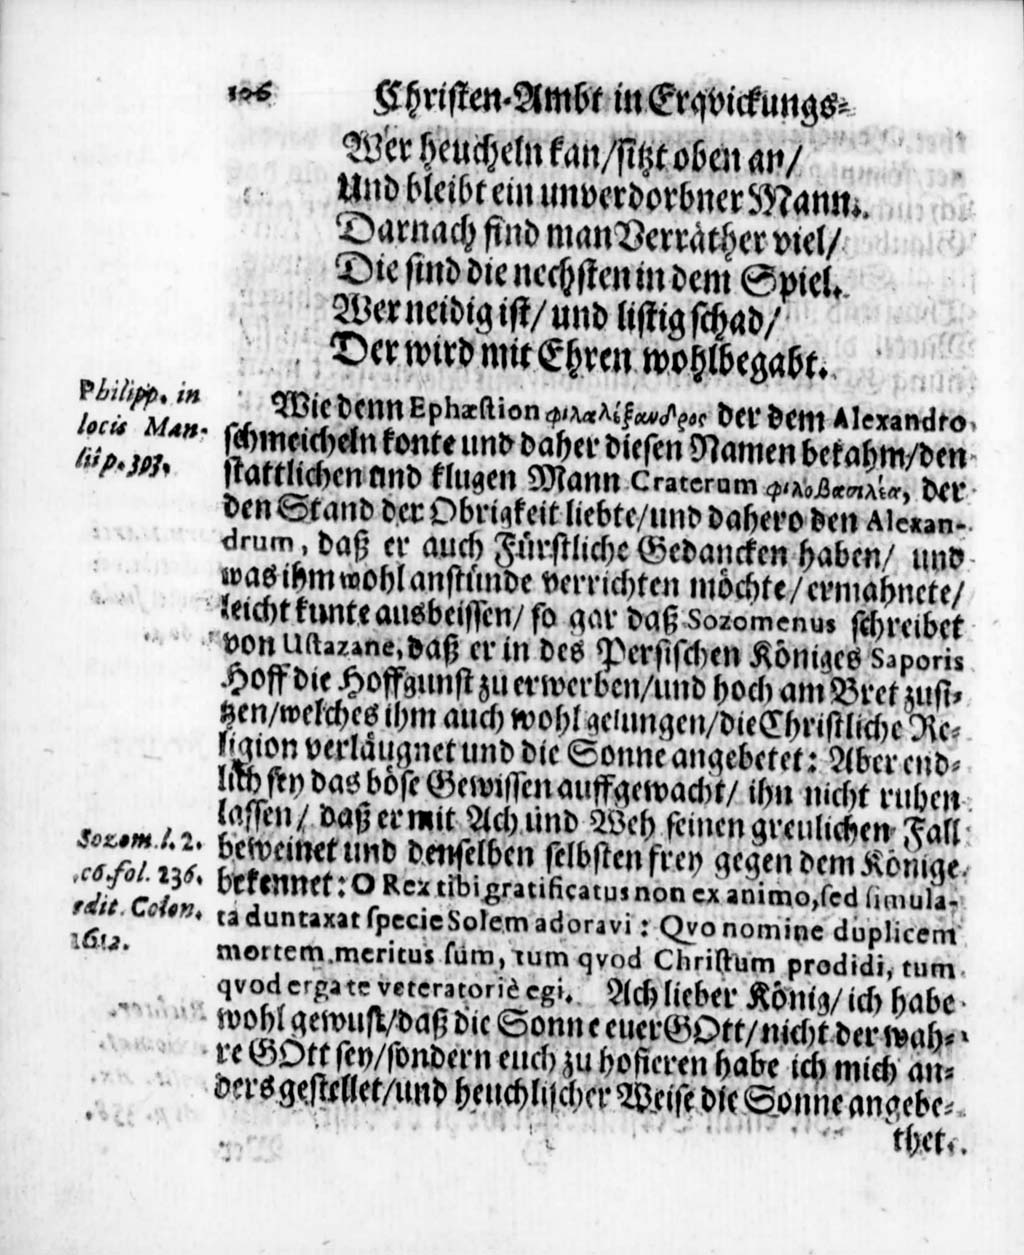 106 Christen-Ambt in Erqvickungs-
Wer heucheln kan/sitzt oben an/
Und bleibt ein unverdorbner Mann.
Darnach find man Verräther viel/
Die sind die nechsten in dem Spiel.
Wer neidig ist/ und listig schad/
Der wird mit Ehren wohlbegabt.
Philipp. in
locis Man-
lii p. 393.
Wie denn Ephæstion φιλαλέξανδρος der dem Alexandro
schmeicheln konte und daher diesen Namen bekahm/den
stattlichen und klugen Mann Craterum φιλοβασιλέα, der
den Stand der Obrigkeit liebte/und dahero den Alexan-
drum, daß er auch Fürstliche Gedancken haben/ und
was ihm wohl anstünde verrichten möchte/ ermahnete/
leicht kunte ausbeissen/ so gar daß Sozomenus schreibet
von Ustazane, daß er in des Persischen Königes Saporis
Hoff die Hoffgunst zu erwerben/und hoch am Bret zusi-
tzen/welches ihm auch wohl gelungen/die Christliche Re-
ligion verläugnet und die Sonne angebetet: Aber end-
lich sey das böse Gewissen auffgewacht/ ihn nicht ruhen
lassen/ daß er mit Ach und Weh seinen greulichen Fall
beweinet und denselben selbsten frey gegen dem Könige
bekennet: O Rex tibi gratificatus non ex animo, sed simula-
ta duntaxat specie Solem adoravi: Qvo nomine duplicem
mortem meritus sum, tum qvod Christum prodidi, tum
qvod erga te veteratoriè egi. Ach lieber König/ ich habe
wohl gewust/daß die Sonne euer GOtt/nicht der wah-
re GOtt sey/sondern euch zu hofieren habe ich mich an-
ders gestellet/und heuchlischer Weise die Sonne angebe-
thet.
Sozom. l. 2.
c6. fol. 236.
edit. Colon.
1612.